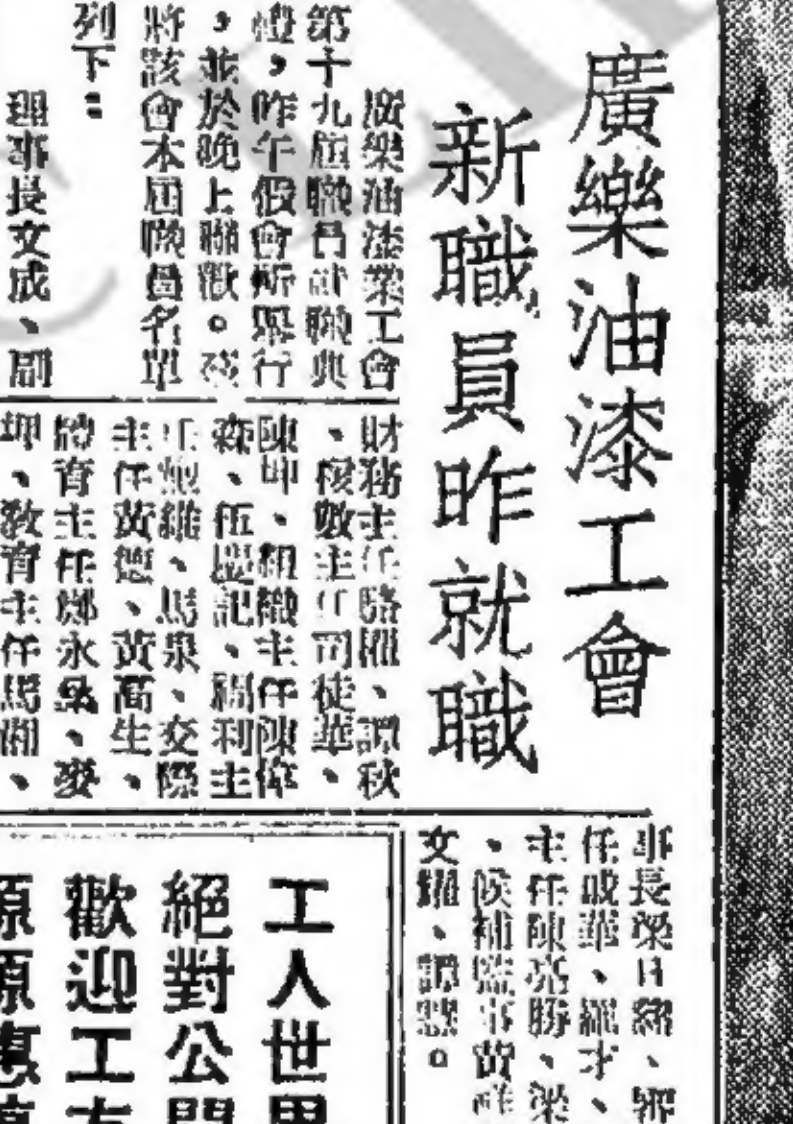 廣樂油漆工會
新職員昨就職
廣樂油漆業工會
第十九屆職員就職典
禮，昨午假會所舉行
，並於晚上聯歡。茲
將該會本屆職員名單
列下：
理事長文成、副
財務主任駱權、譚秋
、核數主任司徒華、
陳坤、組織主任陳偉
森、伍
記、福利主
任
維、馬泉、交際
主任黃德、黃高生、
體育主任鄭永
、麥
坤、教育主任馬湖、
事長梁日
、
任成華、羅才、
主任陳亮勝、梁
、候補監事黃
文耀、譚
。
工人世界
絕對公開
歡迎工友
源源惠